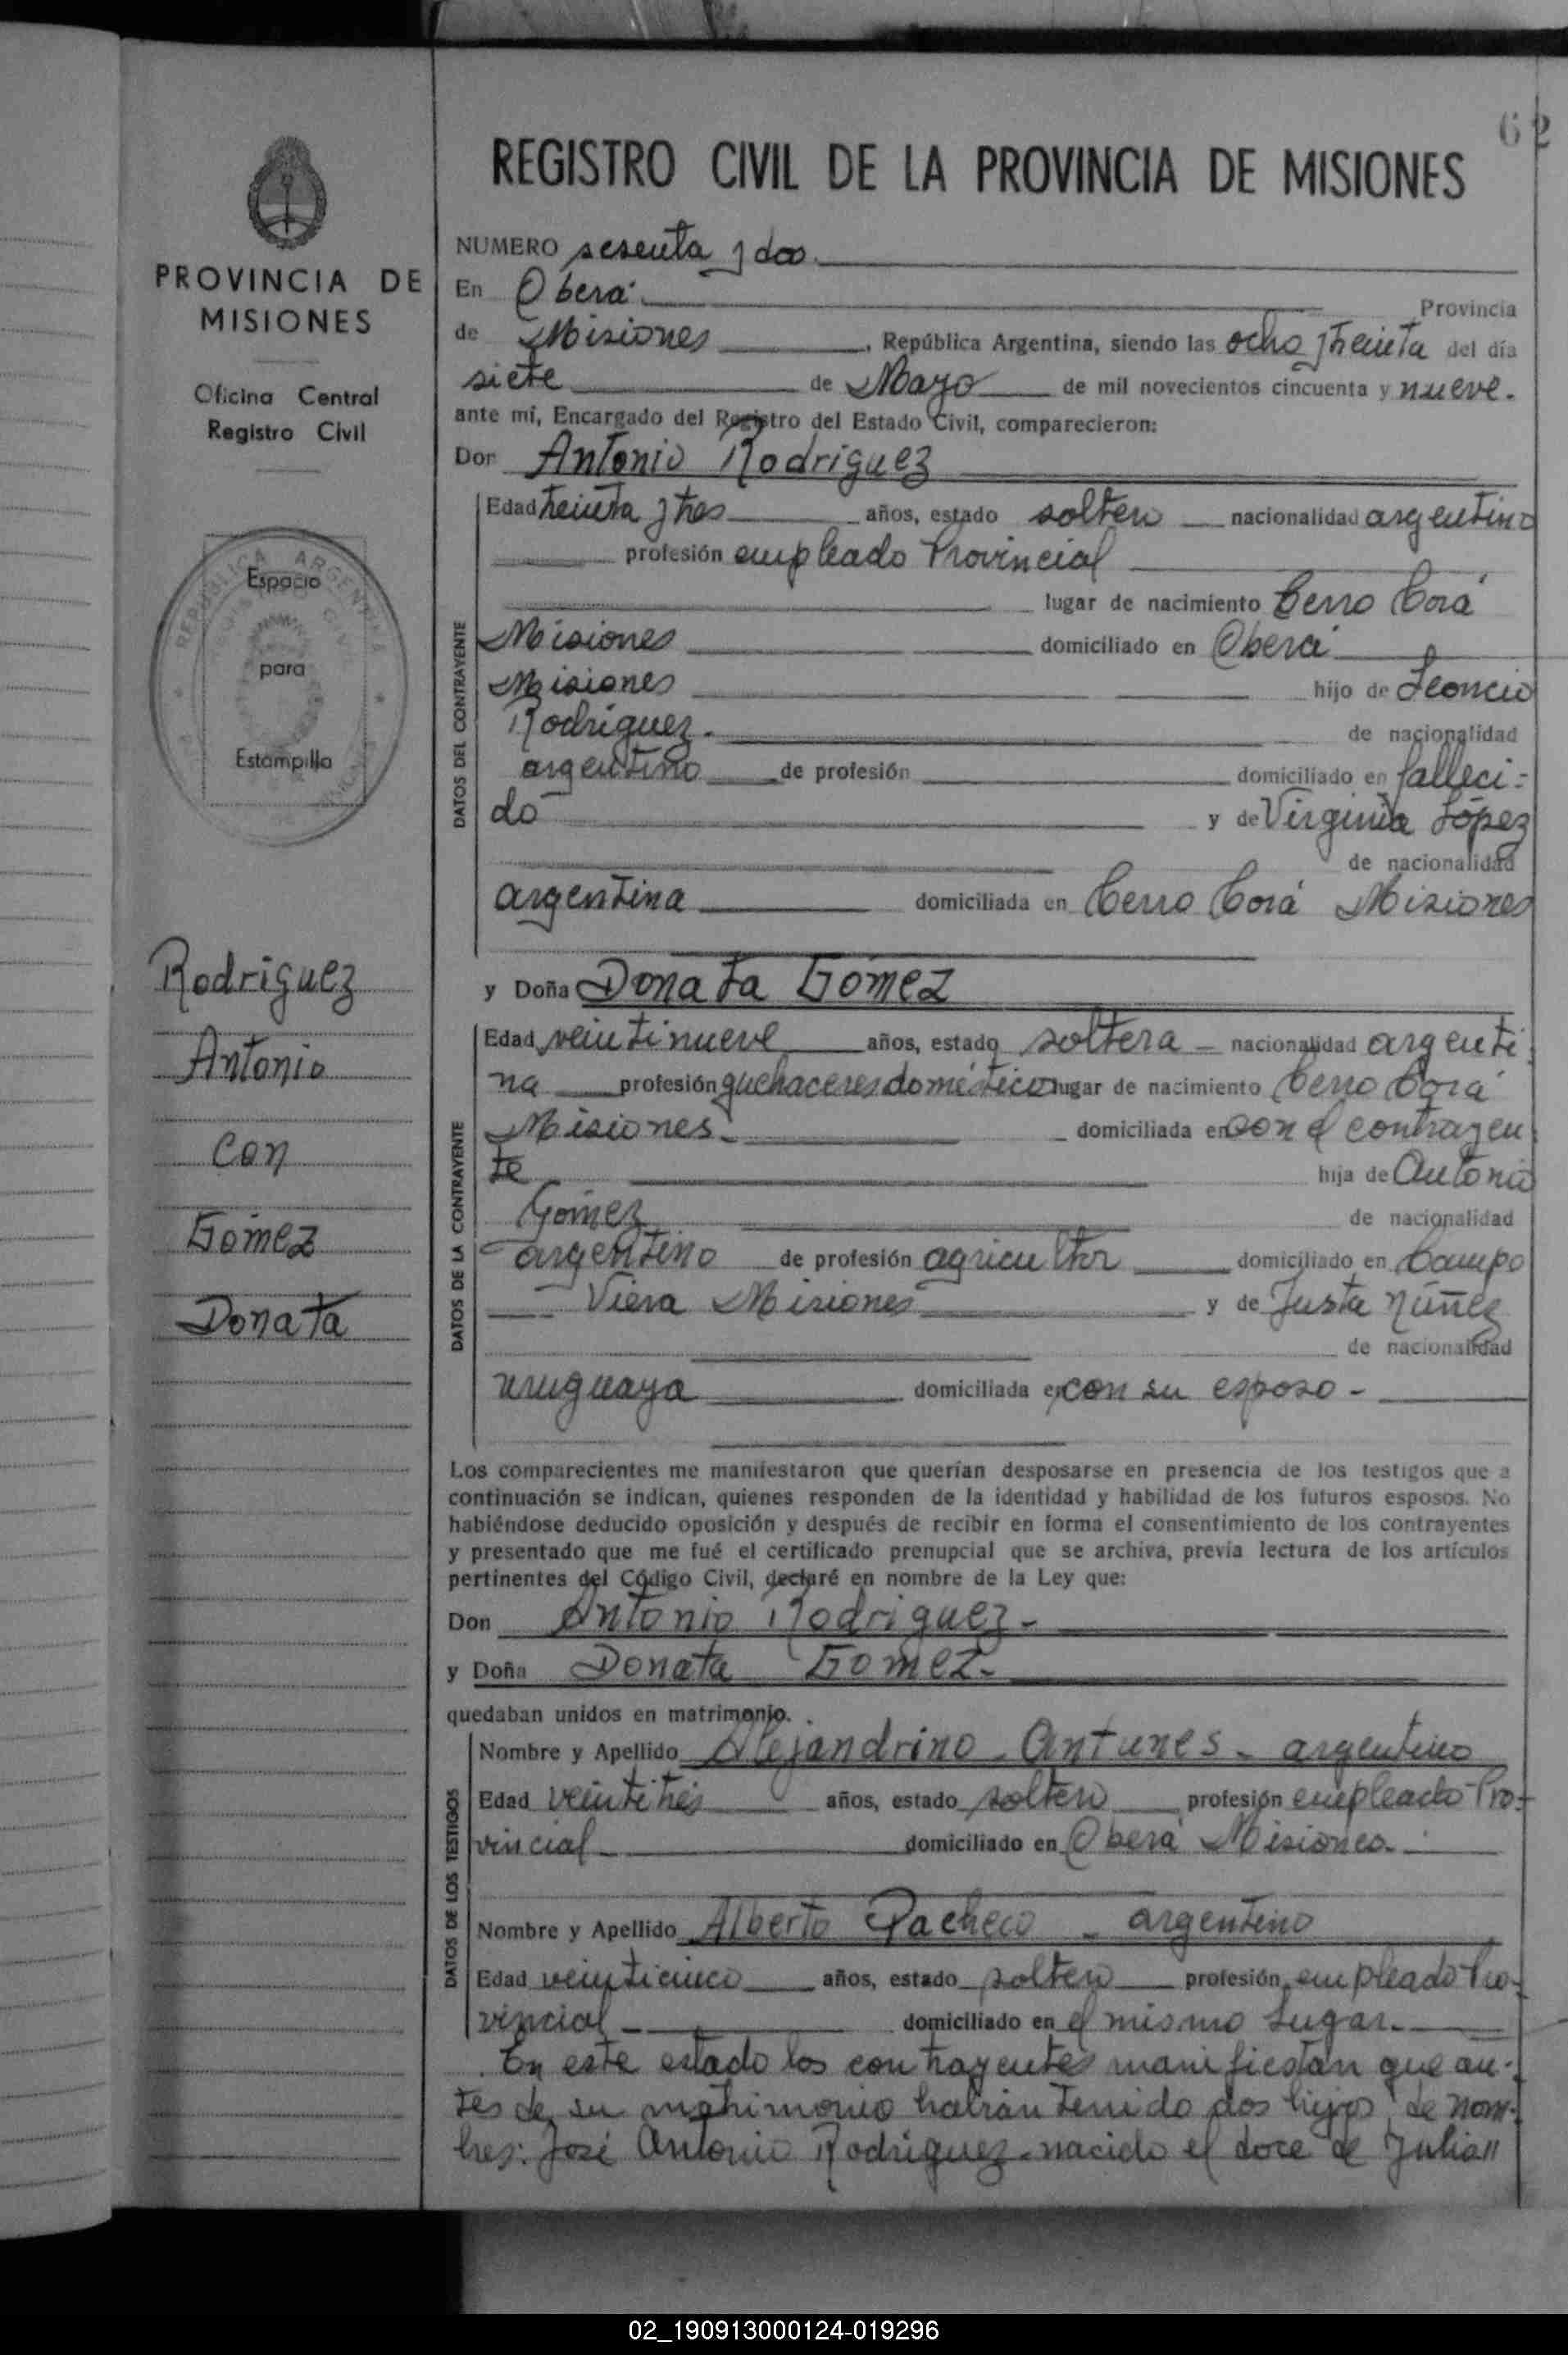 62
REGISTRO CIVIL DE LA PROVINCIA DE MISIONES
PROVINCIA DE
MISIONES
Oficina Central
Registro Civil
REPUBLICA ARGENTINA
Espacio
para
Estampilla
Rodriguez
Antonio
con
Gomez
Donata
NUMERO sesenta y dos.
En Oberá. Provincia
de Misiones, República Argentina, siendo las ocho y treinta del día
siete de Mayo de mil novecientos cincuenta y nueve.
ante mí, Encargado del Registro del Estado Civil, comparecieron:
Don Antonio Rodriguez
DATOS DEL CONTRAYENTE
Edad treinta y tres años, estado soltero nacionalidad argentino
profesión empleado Provincial
lugar de nacimiento Cerro Corá
Misiones domiciliado en Oberá
Misiones hijo de Leoncio
Rodriguez. de nacionalidad
argentino de profesión domiciliado en falleci-
do y de Virginia López
de nacionalidad
argentina domiciliada en Cerro Corá Misiones
y Doña Donata Gomez
DATOS DE LA CONTRAYENTE
Edad veintinueve años, estado soltera - nacionalidad argenti
na profesión quehaceres doméstico lugar de nacimiento Cerro Corá
Misiones. domiciliada en con el contrayen
te hija de Antonio
Gómez de nacionalidad
argentino de profesión agricultor domiciliado en Campo
Viera Misiones y de Justa Núñez
de nacionalidad
uruguaya domiciliada en con su esposo -
Los comparecientes me manifestaron que querían desposarse en presencia de los testigos que a
continuación se indican, quienes responden de la identidad y habilidad de los futuros esposos. No
habiéndose deducido oposición y después de recibir en forma el consentimiento de los contrayentes
y presentado que me fué el certificado prenupcial que se archiva, previa lectura de los artículos
pertinentes del Código Civil, declaré en nombre de la Ley que:
Don Antonio Rodriguez -
y Doña Donata Gomez -
quedaban unidos en matrimonio.
DATOS DE LOS TESTIGOS
Nombre y Apellido Alejandrino Antunes - argentino
Edad veintitrés años, estado soltero profesión empleado Pro-
vincial domiciliado en Oberá Misiones.
Nombre y Apellido Alberto Pacheco - argentino
Edad veinticinco años, estado soltero profesión empleado Pro-
vincial - domiciliado en el mismo lugar.
En este estado los contrayentes manifiestan que an-
tes de su matrimonio habían tenido dos hijos de nom-
bres: José Antonio Rodriguez - nacido el doce de Julio//
02_190913000124-019296